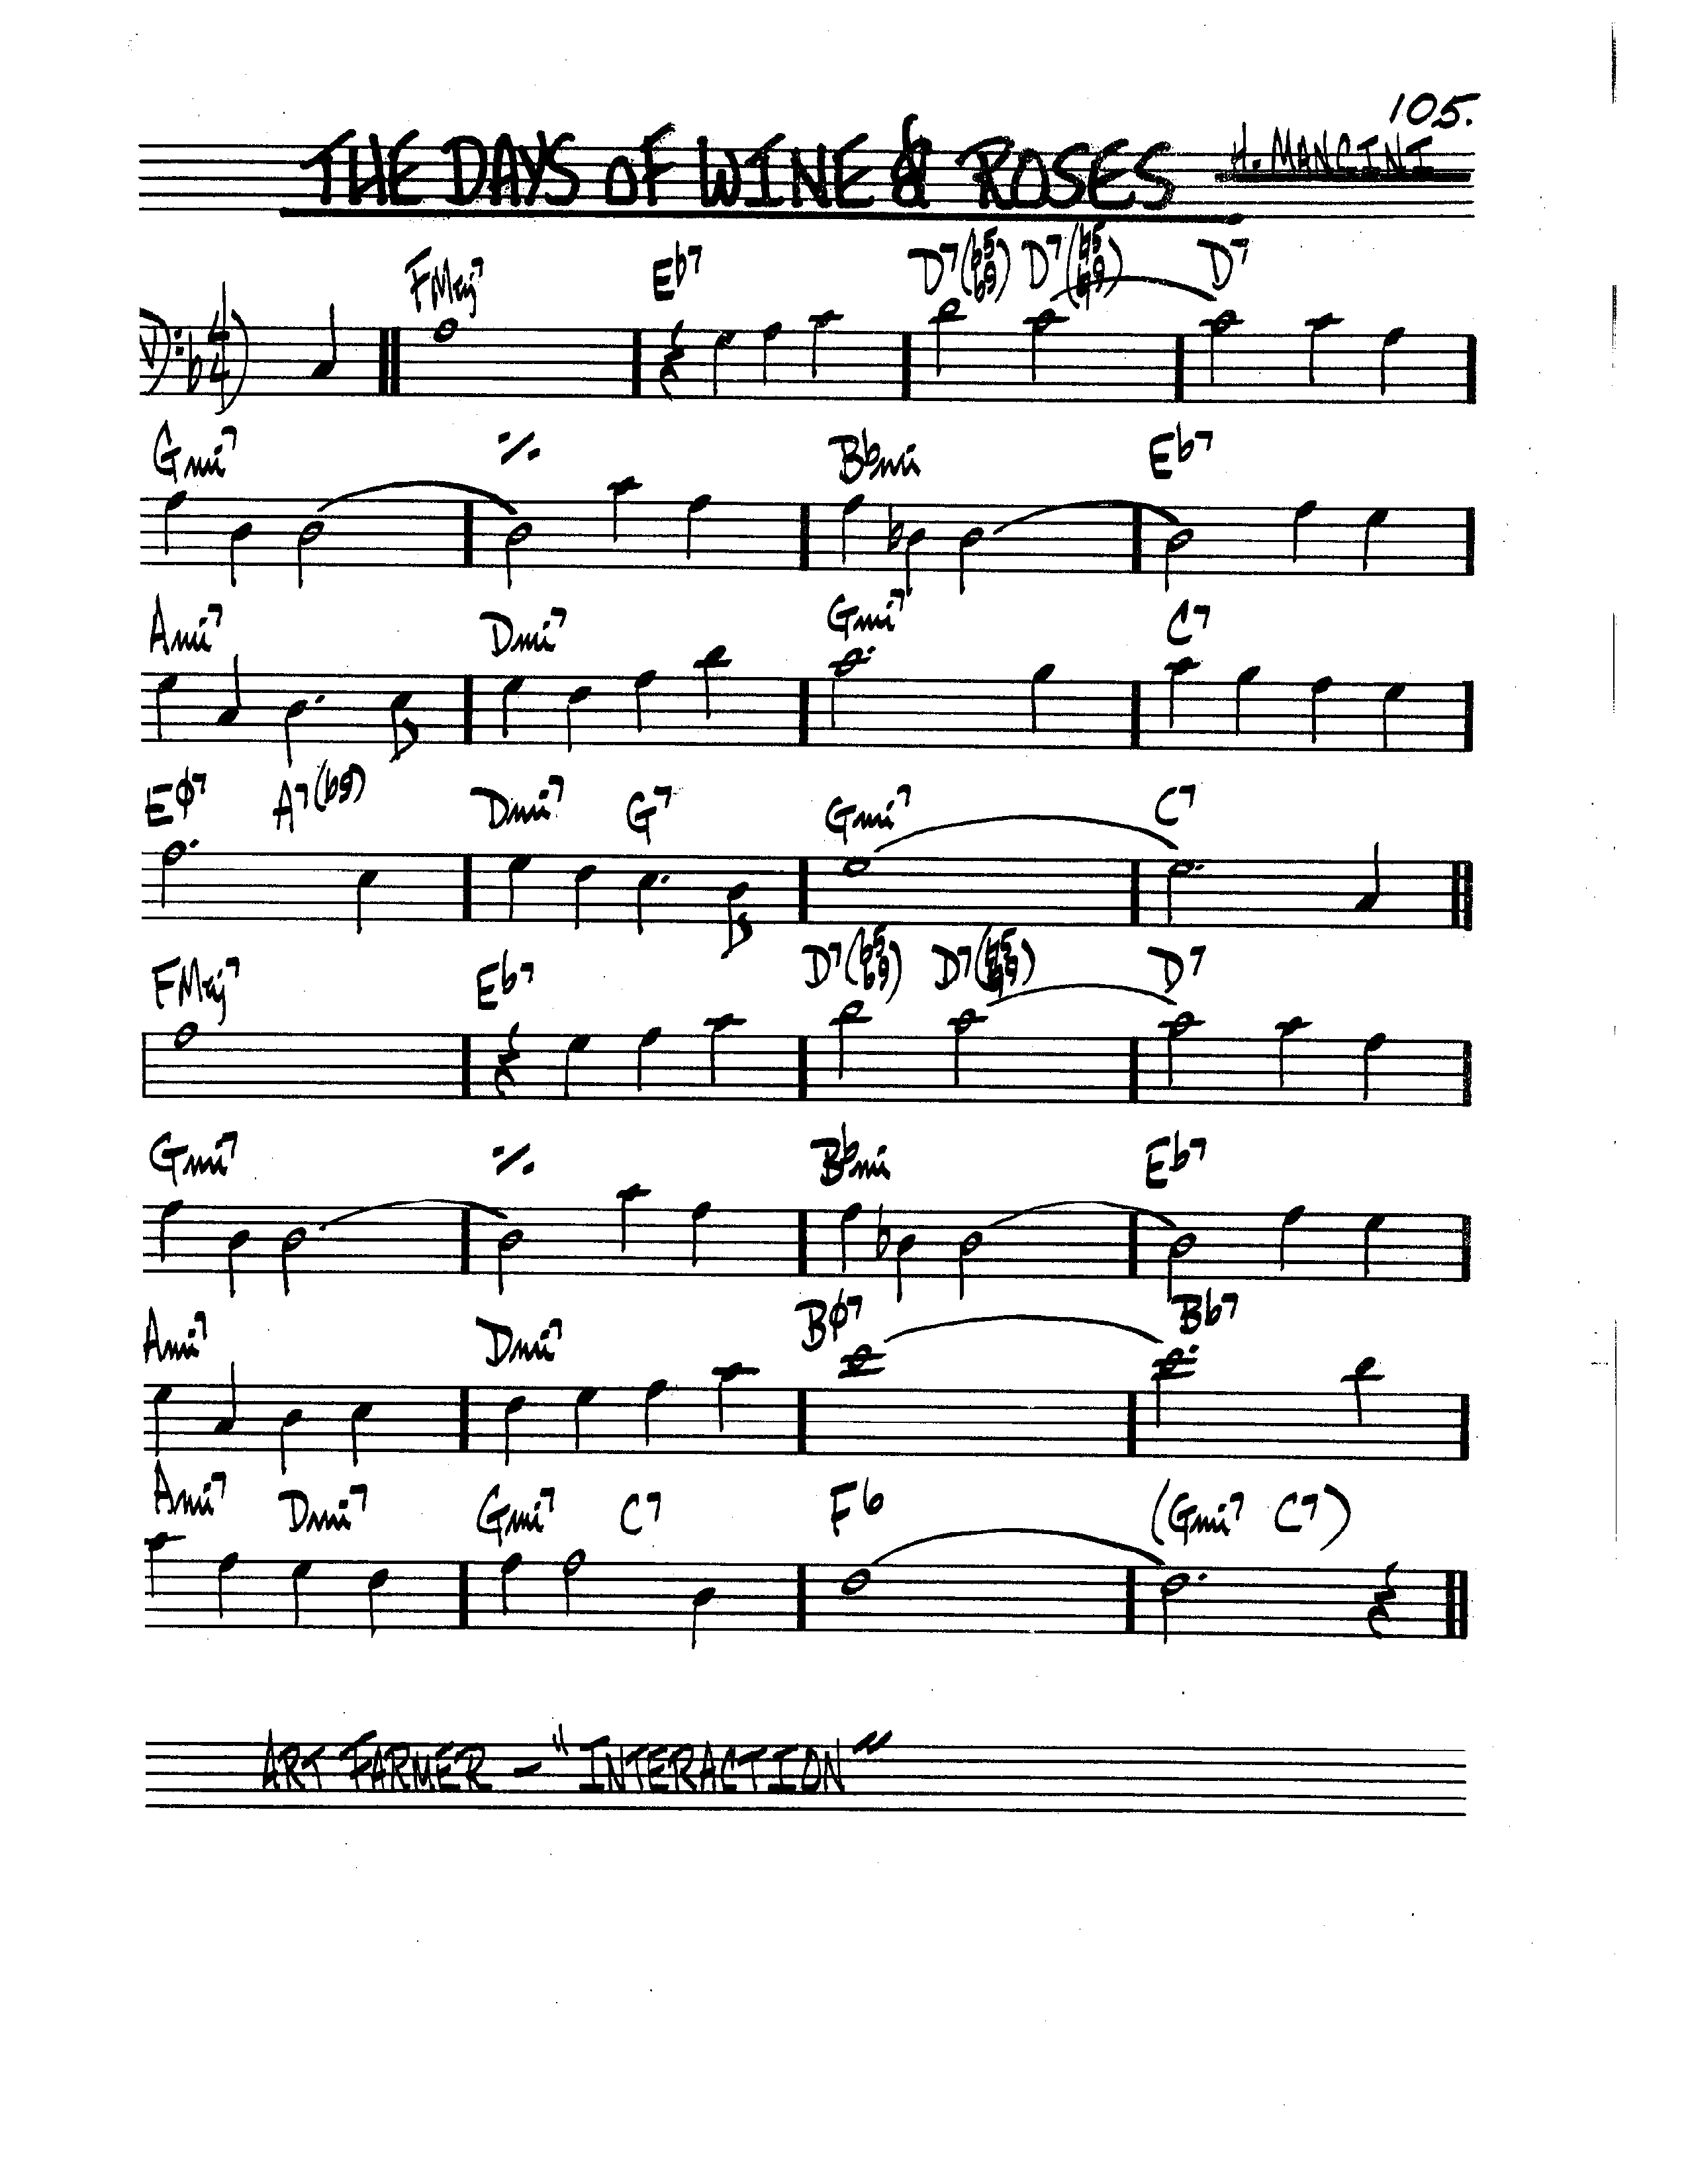 105.
THE DAYS OF WINE & ROSES H. MANCINI
FMaj7 Eb7 D7(b5b9) D7(♮5♮9) D7
4/4
Gmi7 ٪ Bbmi Eb7
Ami7 Dmi7 Gmi7 C7
Eø7 A7(b9) Dmi7 G7 Gmi7 C7
FMaj7 Eb7 D7(b5b9) D7(♮5♮9) D7
Gmi7 ٪ Bbmi Eb7
Ami7 Dmi7 Bø7 Bb7
Ami7 Dmi7 Gmi7 C7 F6 (Gmi7 C7)
ART FARMER - "INTERACTION"